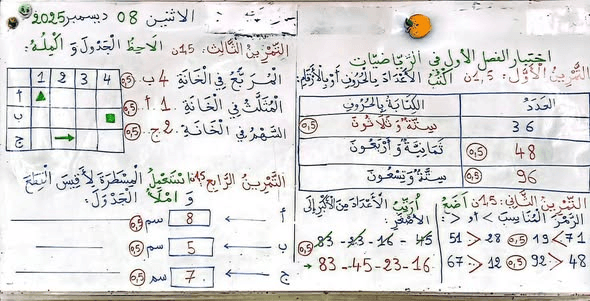 الاثنين 08 ديسمبر 2025
اختبار الفصل الأول في الرياضيات
التمرين الأول: 1,5ن اكتب الأعداد بالحروف أو بالأرقام:
العدد الكتابة بالحروف
36 ستة وثلاثون 0,5
48 0,5 ثمانية وأربعون
96 0,5 ستة وتسعون
التمرين الثاني: 1,5ن أضع
الرمز المناسب > أو <:
51 > 28 0,5 19 < 71
67 > 12 0,5 92 > 48
أرتب الأعداد من الأكبر إلى
الأصغر:
0,5 83 - 23 - 16 - 45
83 - 45 - 23 - 16
التمرين الثالث: 1,5ن ألاحظ الجدول و أكمله:
1 2 3 4
أ
ب
ج
المربع في الخانة 4 ب. 0,5
المثلث في الخانة 1. أ. 0,5
السهم في الخانة 2. ج. 0,5
التمرين الرابع: 1,5ن أستعمل المسطرة لأقيس القطع
و أملأ الجدول:
أ 8 سم 0,5
ب 5 سم 0,5
ج 7 سم 0,5